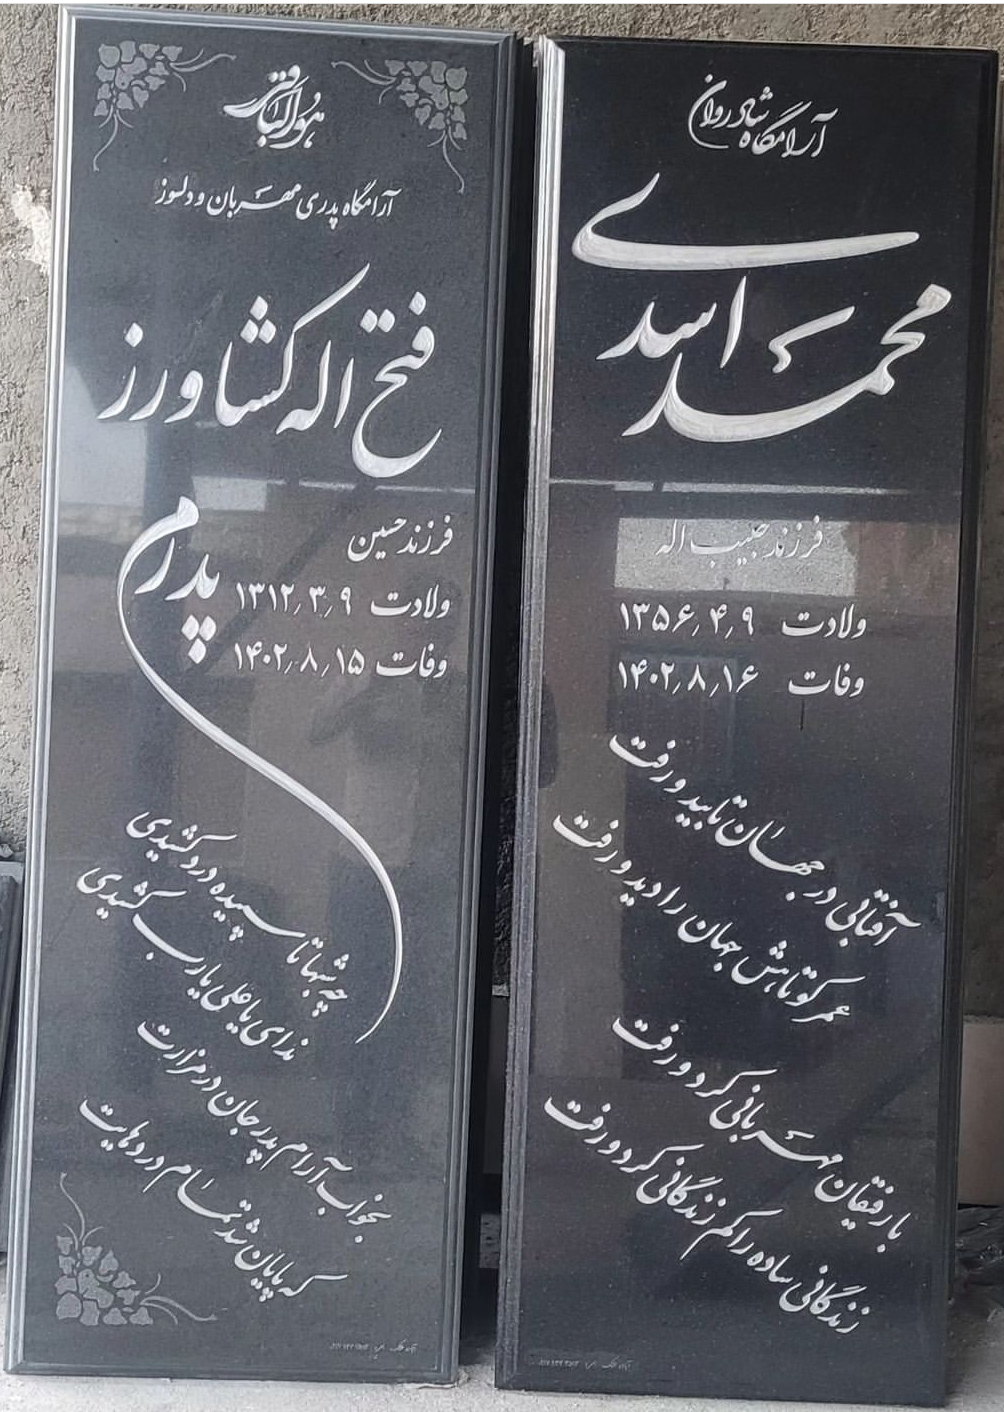 آرامگاه شادروان
محمد اسدی
فرزند حبیب اله
ولادت ۱۳۵۶٫۴٫۹
وفات ۱۴۰۲٫۸٫۱۶
آفتابی در جهان تابید و رفت
عمر کوتاهش جهان را دید و رفت
با رفیقان مهربانی کرد و رفت
زندگانی ساده را کم زندگانی کرد و رفت
هوالباقی
آرامگاه پدری مهربان و دلسوز
فتح اله کشاورز
فرزند حسین
ولادت ۱۳۱۲٫۳٫۹
وفات ۱۴۰۲٫۸٫۱۵
پدرم
چه شبها تا سپیده درد کشیدی
ندای یا علی یارب کشیدی
بخواب آرام پدر جان در مزارت
که پایان شد تمام دردهایت